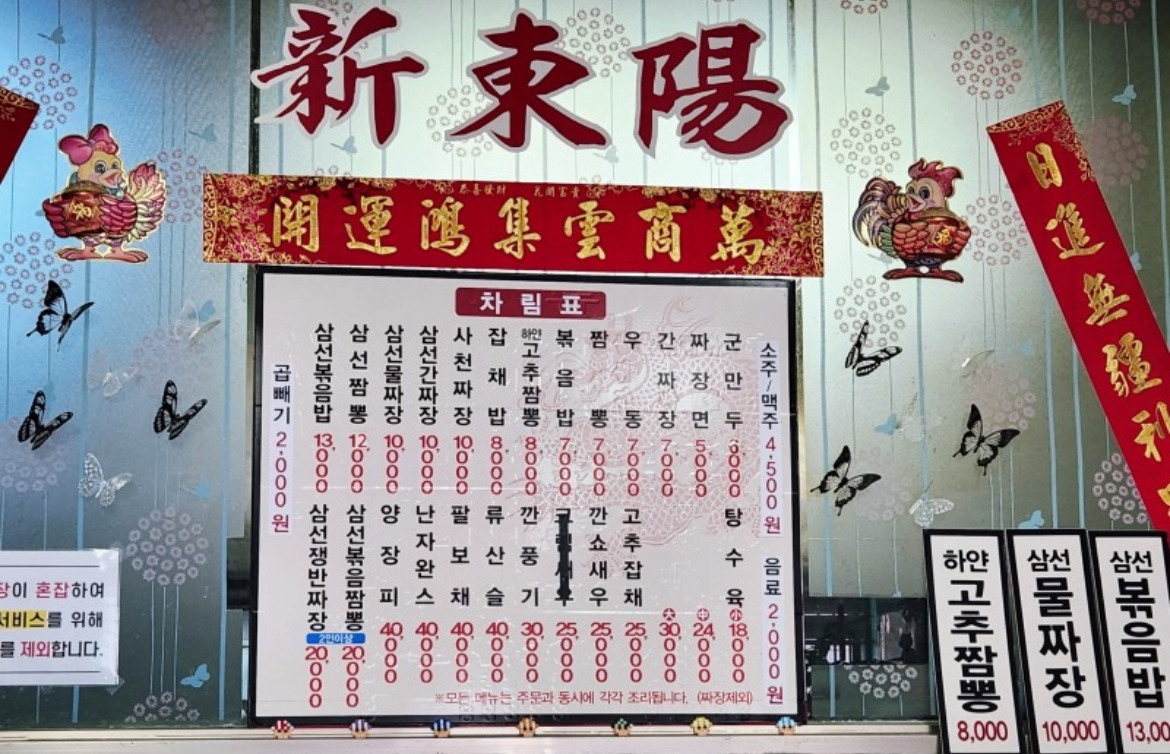 新東陽
恭喜發財 花開富貴
萬商雲集鴻運開
日進無疆利
차림표
소주/맥주 4,500원
음료 2,000원
군만두 6,000
짜장면 5,000
간짜장 7,000
우동 7,000
짬뽕 7,000
볶음밥 7,000
하얀고추짬뽕 8,000
잡채밥 8,000
사천짜장 10,000
삼선간짜장 10,000
삼선물짜장 10,000
삼선짬뽕 12,000
삼선볶음밥 13,000
곱빼기 2,000원
탕수육 小 18,000
中 24,000
大 30,000
고추잡채 25,000
깐쇼새우 25,000
25,000
깐풍기 30,000
류산슬 40,000
팔보채 40,000
난자완스 40,000
양장피 40,000
2인이상
삼선볶음짬뽕 20,000
삼선쟁반짜장 20,000
※모든 메뉴는 주문과 동시에 각각 조리됩니다. (짜장제외)
장이 혼잡하여
서비스를 위해
를 제외합니다.
하얀
고추짬뽕
8,000
삼선
물짜장
10,000
삼선
볶음밥
13,00